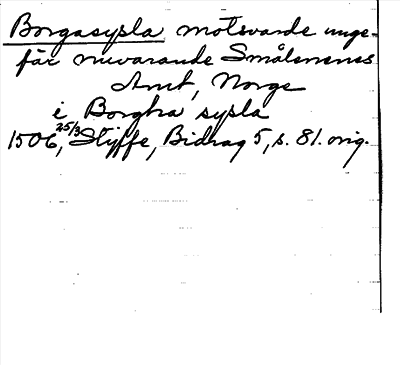 Borgasysla motsvarde unge-
fär nuvarande Smålenenes
Amt, Norge
i Borgha sysla
1506 25/3, Styffe, Bidrag 5, s. 81. orig.